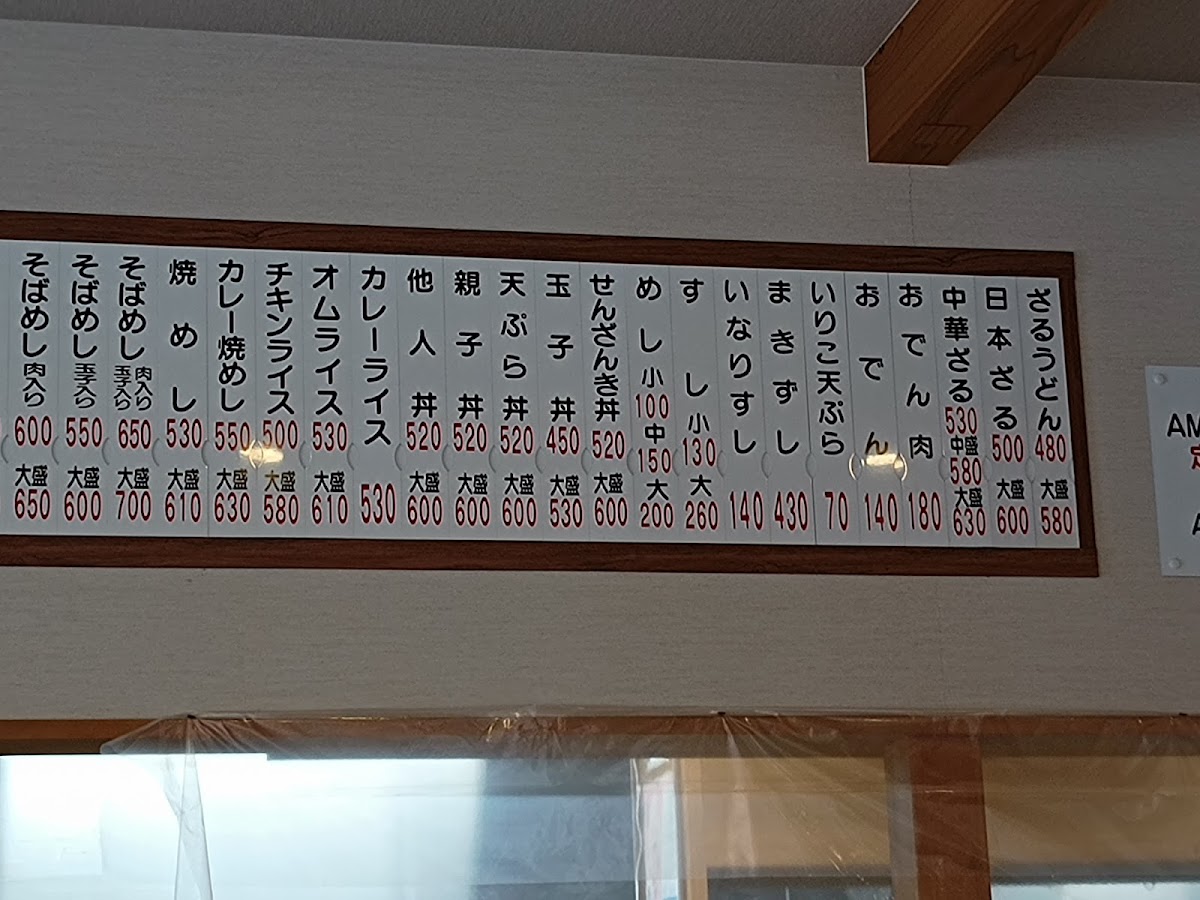 ざるうどん 480 大盛 580
日本ざる 500 大盛 600
中華ざる 530 中盛 580 大盛 630
おでん肉 180
おでん 140
いりこ天ぷら 70
まきずし 430
いなりずし 140
すし 小 130 大 260
めし 小 100 中 150 大 200
せんざんき丼 520 大盛 600
玉子丼 450 大盛 530
天ぷら丼 520 大盛 600
親子丼 520 大盛 600
他人丼 520 大盛 600
カレーライス 530
オムライス 530 大盛 610
チキンライス 500 大盛 580
カレー焼めし 550 大盛 630
焼めし 530 大盛 610
そばめし 肉入り 玉子入り 650 大盛 700
そばめし 玉子入り 550 大盛 600
そばめし 肉入り 600 大盛 650
AM